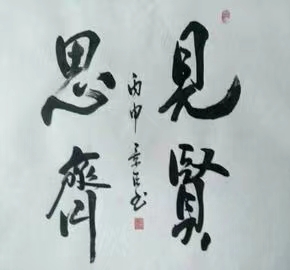 見賢
思齊
丙申